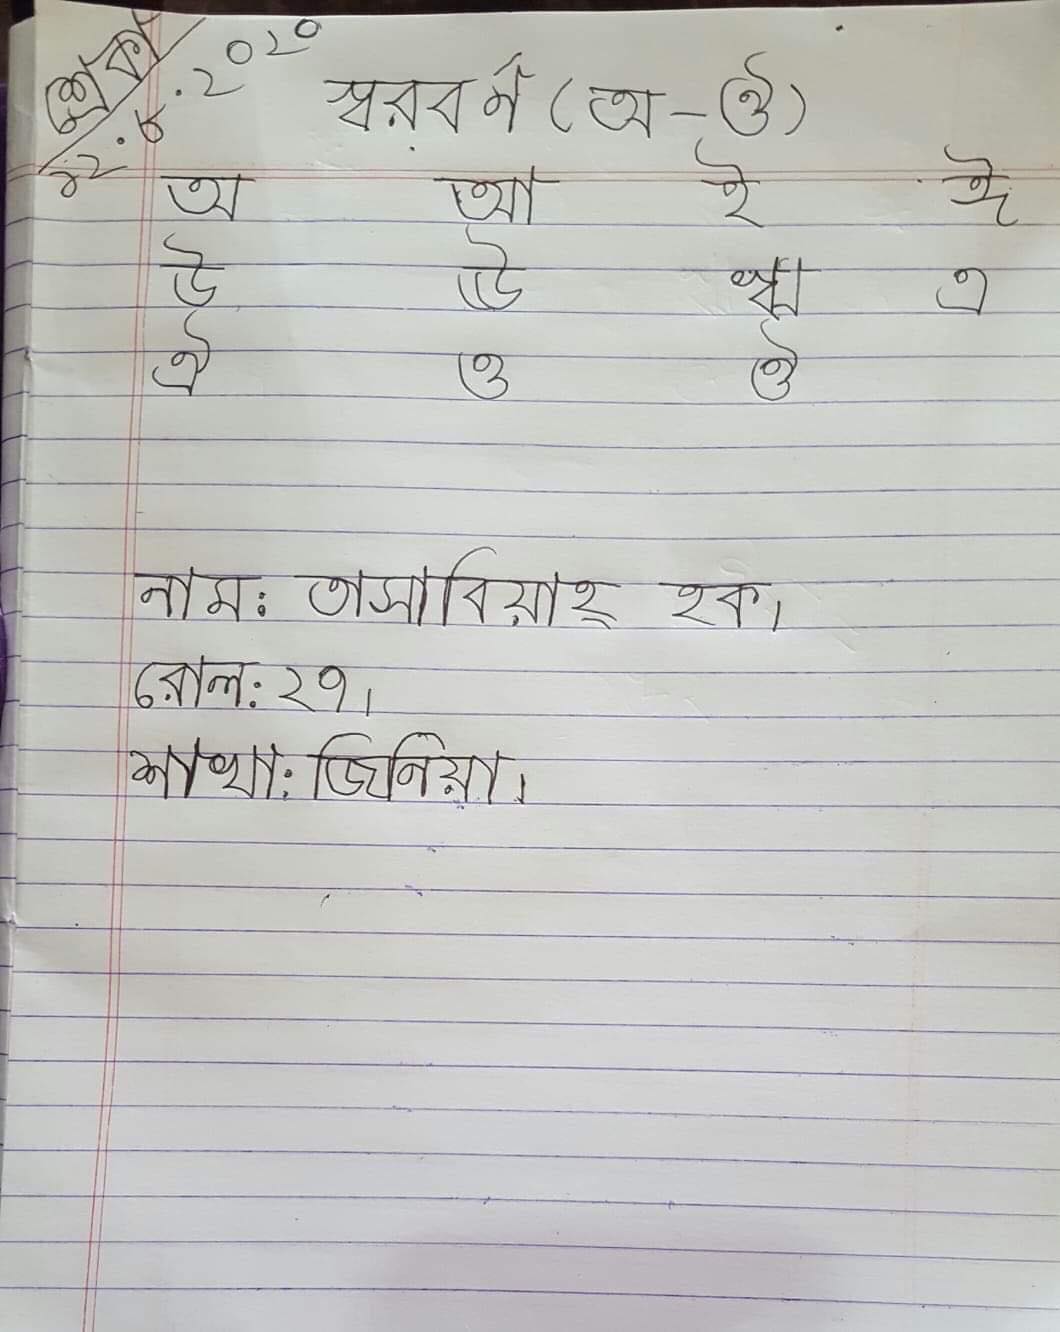 শ্রেকা
১২.৮.২০২০
স্বরবর্ণ (অ-ঔ)
অ আ ই ঈ
উ ঊ ঋ এ
ঐ ও ঔ
নাম: তাসাবিয়াহ্ হক।
রোল: ২৭।
শাখা: জিনিয়া।